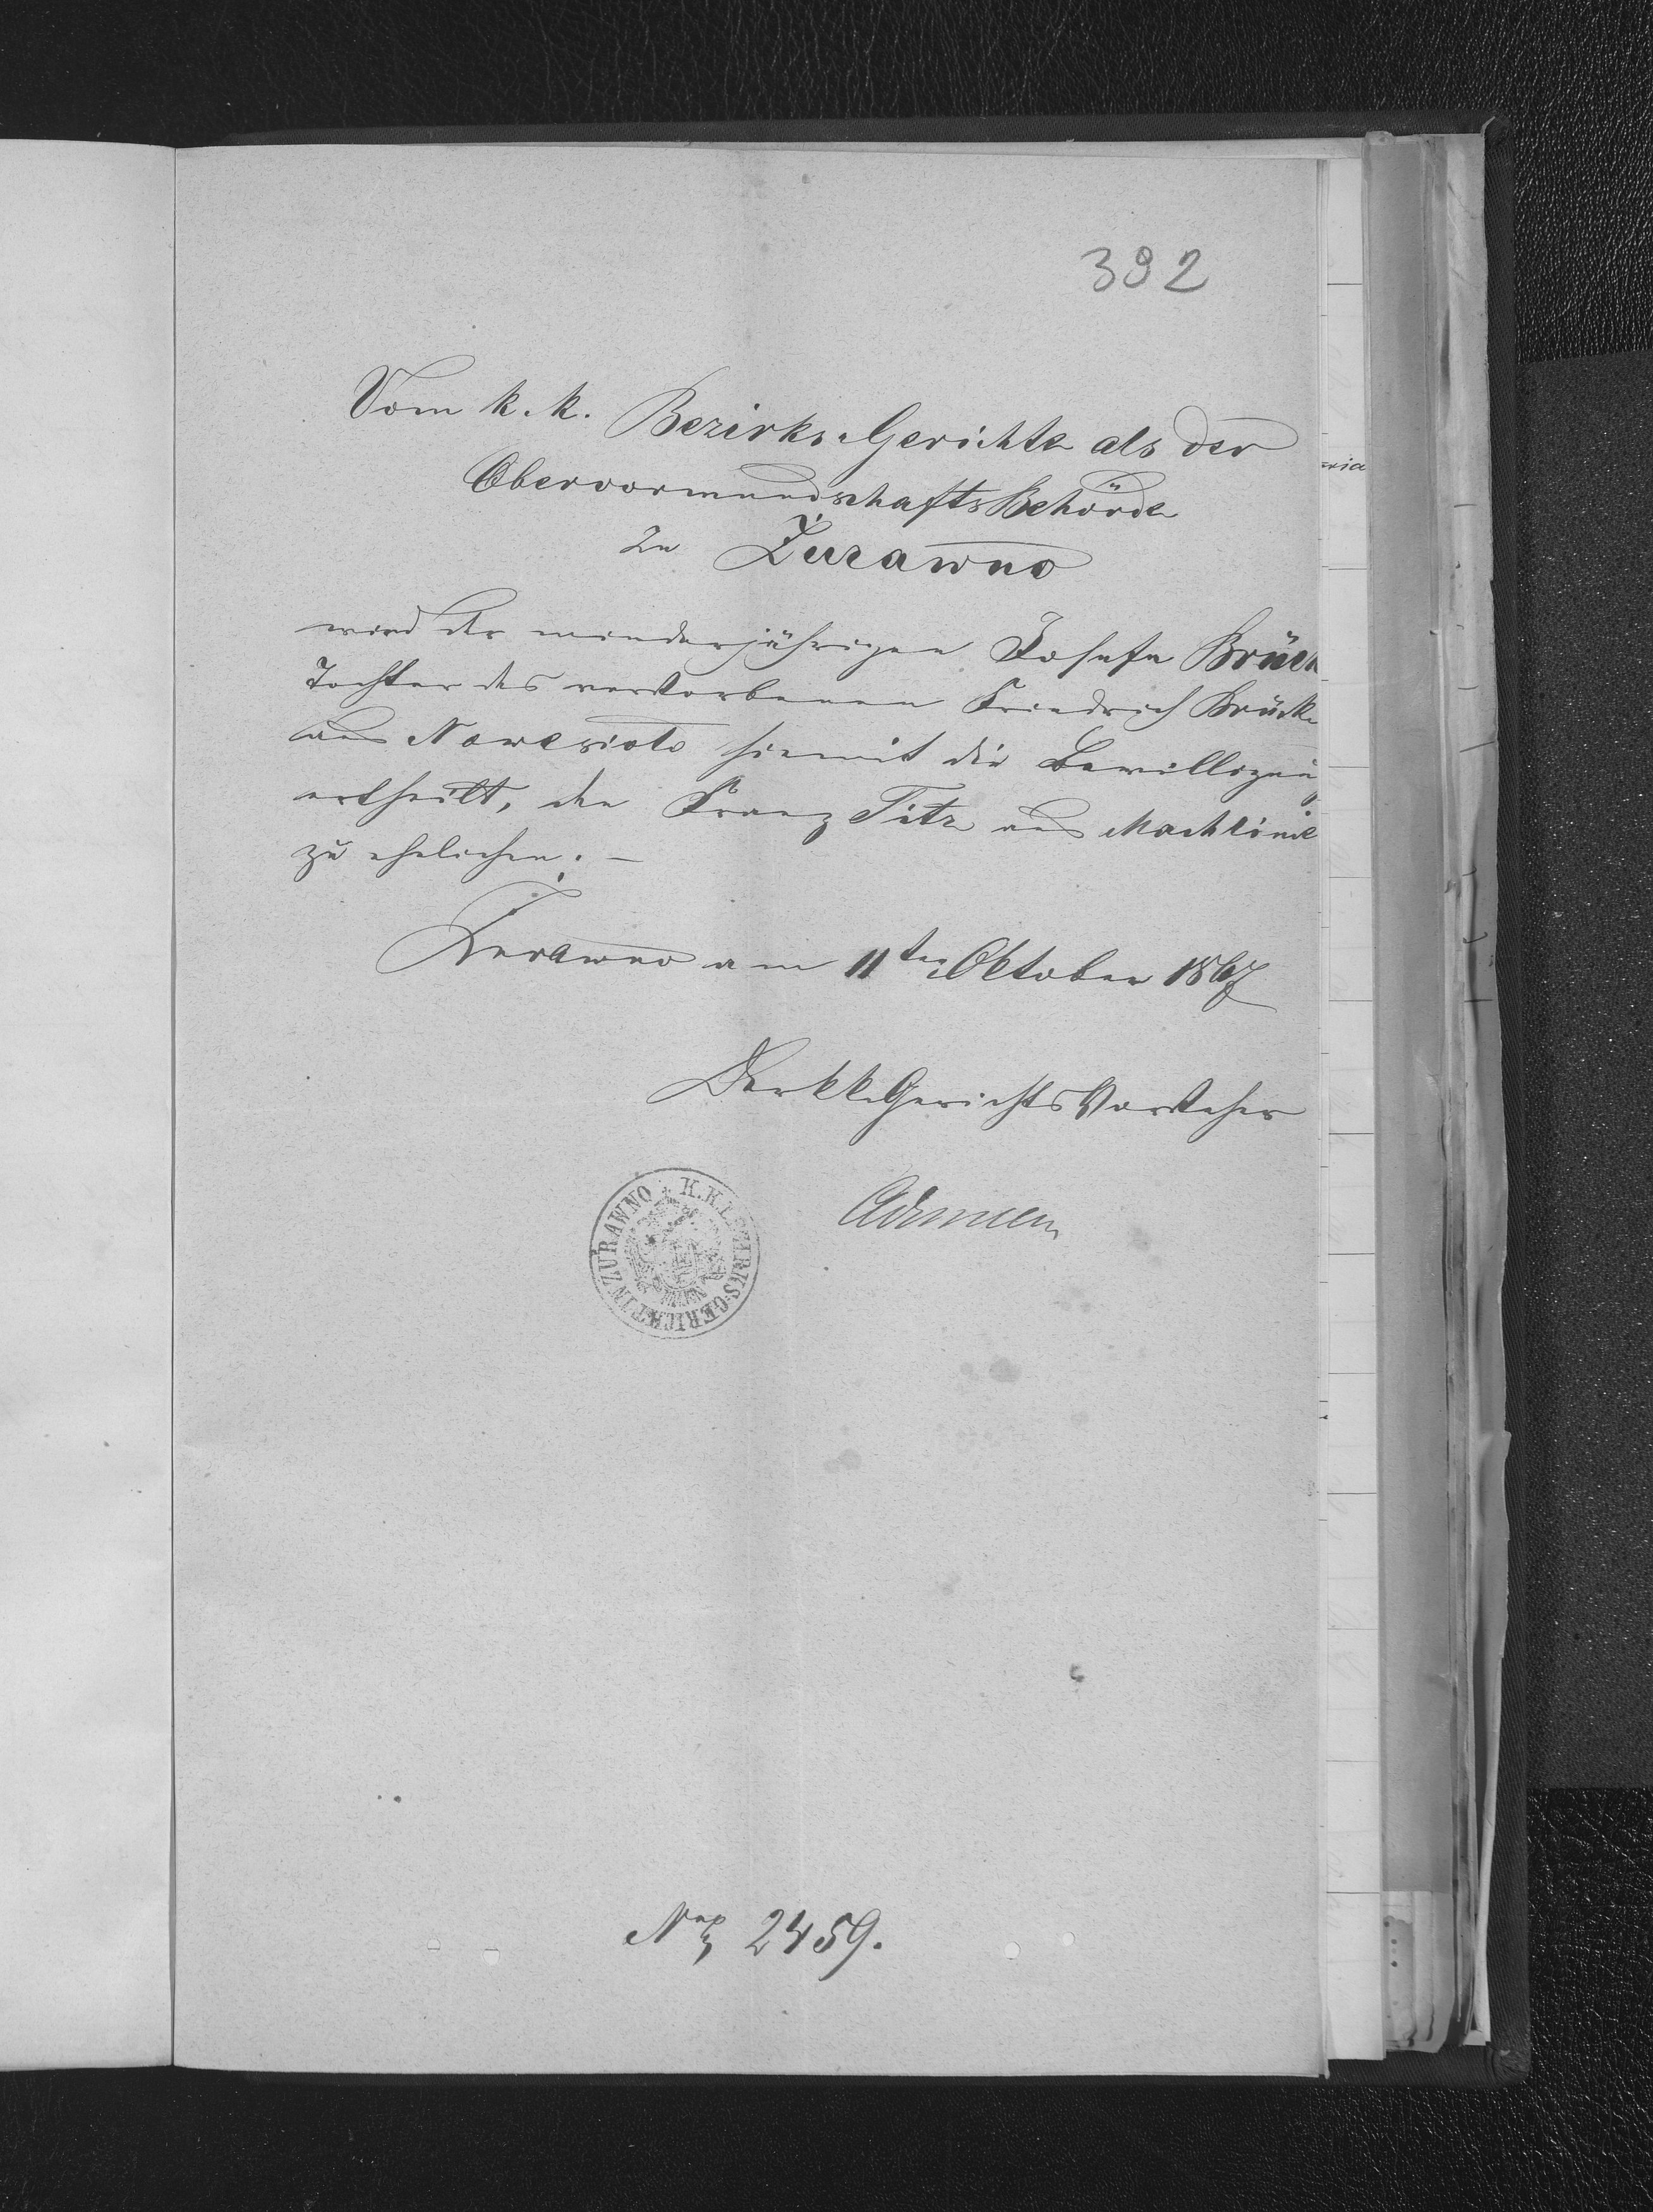 392
Vom k. k. Bezirks-Gerichte als der
Obervormundschafts Behörde
zu Żurawno
wird der minderjährigen Josefa Brück
Tochter des verstorbenen Friedrich Brück
aus Nowesioło hiemit die Bewilligung
ertheilt, den Franz Titz aus Machlinie
zu ehelichen. –
Żurawno am 11ten Oktober 1867
Der kk Gerichts Vorsteher
K.K. BEZIRKS-GERICHT IN ZURAWNO
Nro 2459.